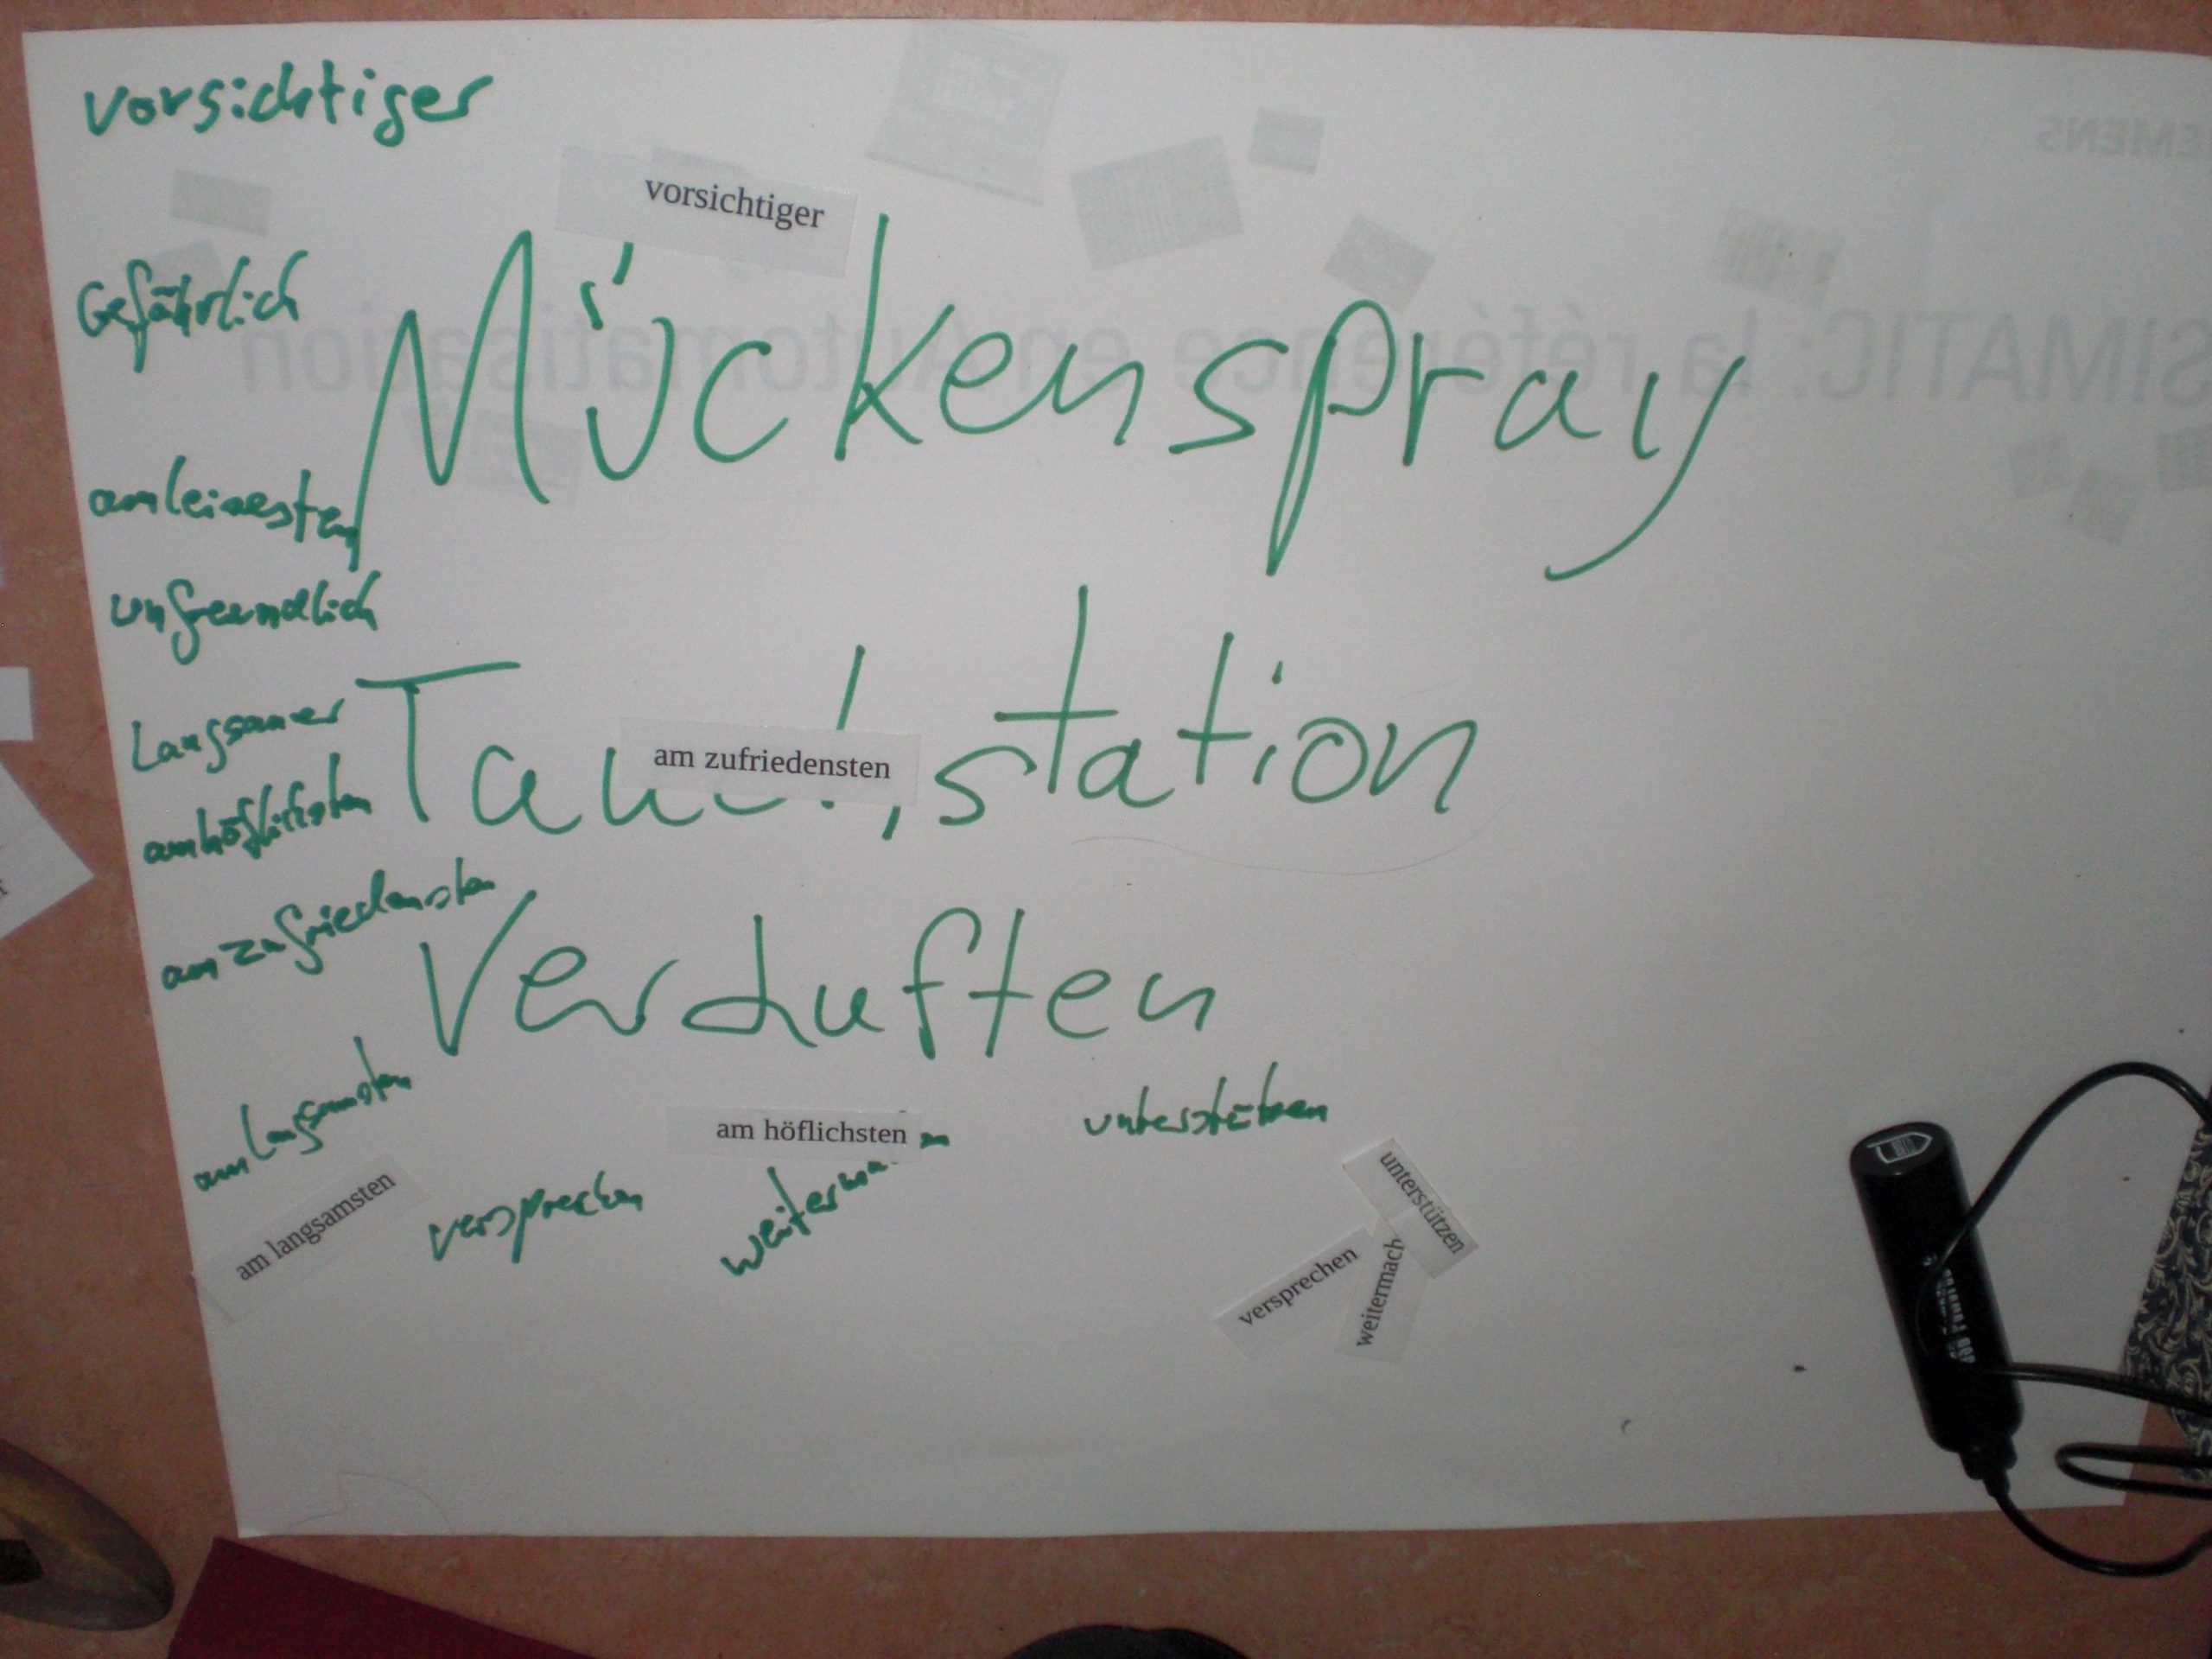 vorsichtiger
vorsichtiger
Gefährlich
Mückenspray
am leisesten
unfreundlich
Langsamer
station
am zufriedensten
am höflichsten
am zufriedensten
Verduften
am langsamsten
am höflichsten
unterstützen
am langsamsten
versprechen
unterstützen
versprechen
weitermach
EMENS
SIMATIC: la référence en Automatisation